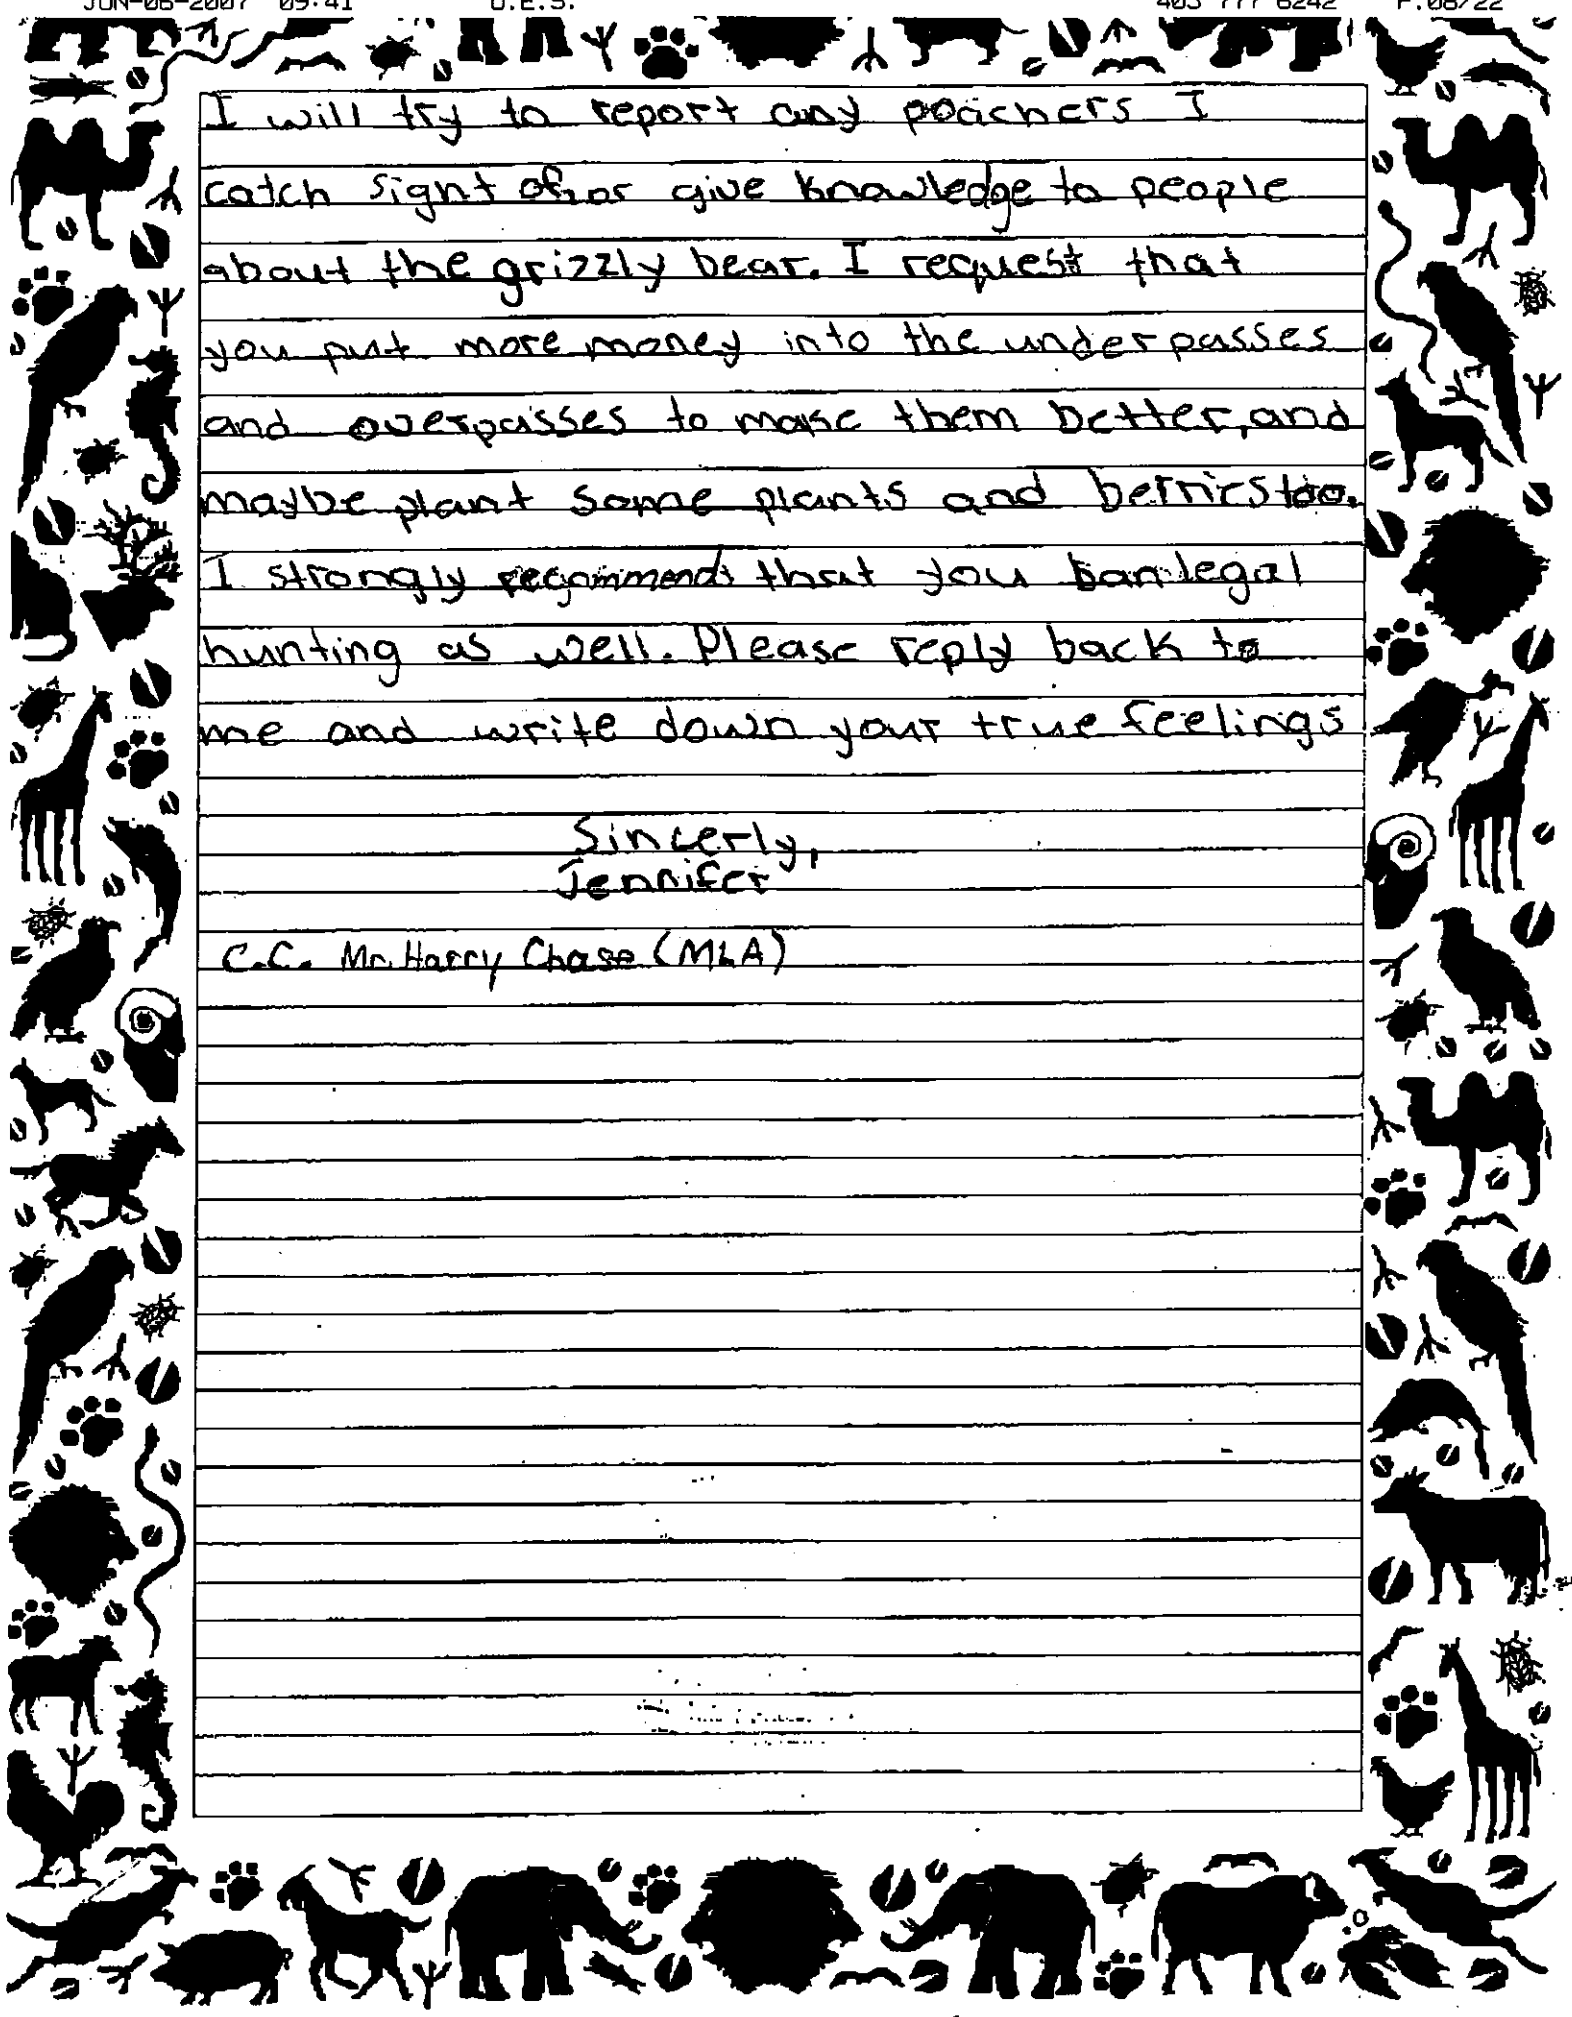 JUN-06-2007 09:41 D.E.S. 403 777 6242 P.08/22
I will try to report any poachers I
catch sight of, or give knowledge to people
about the grizzly bear. I request that
you put more money into the underpasses
and overpasses to make them better, and
maybe plant some plants and berries too.
I strongly recommend that you ban legal
hunting as well. Please reply back to
me and write down your true feelings
Sincerly,
Jennifer
C.C. Mr. Harry Chase (MLA)